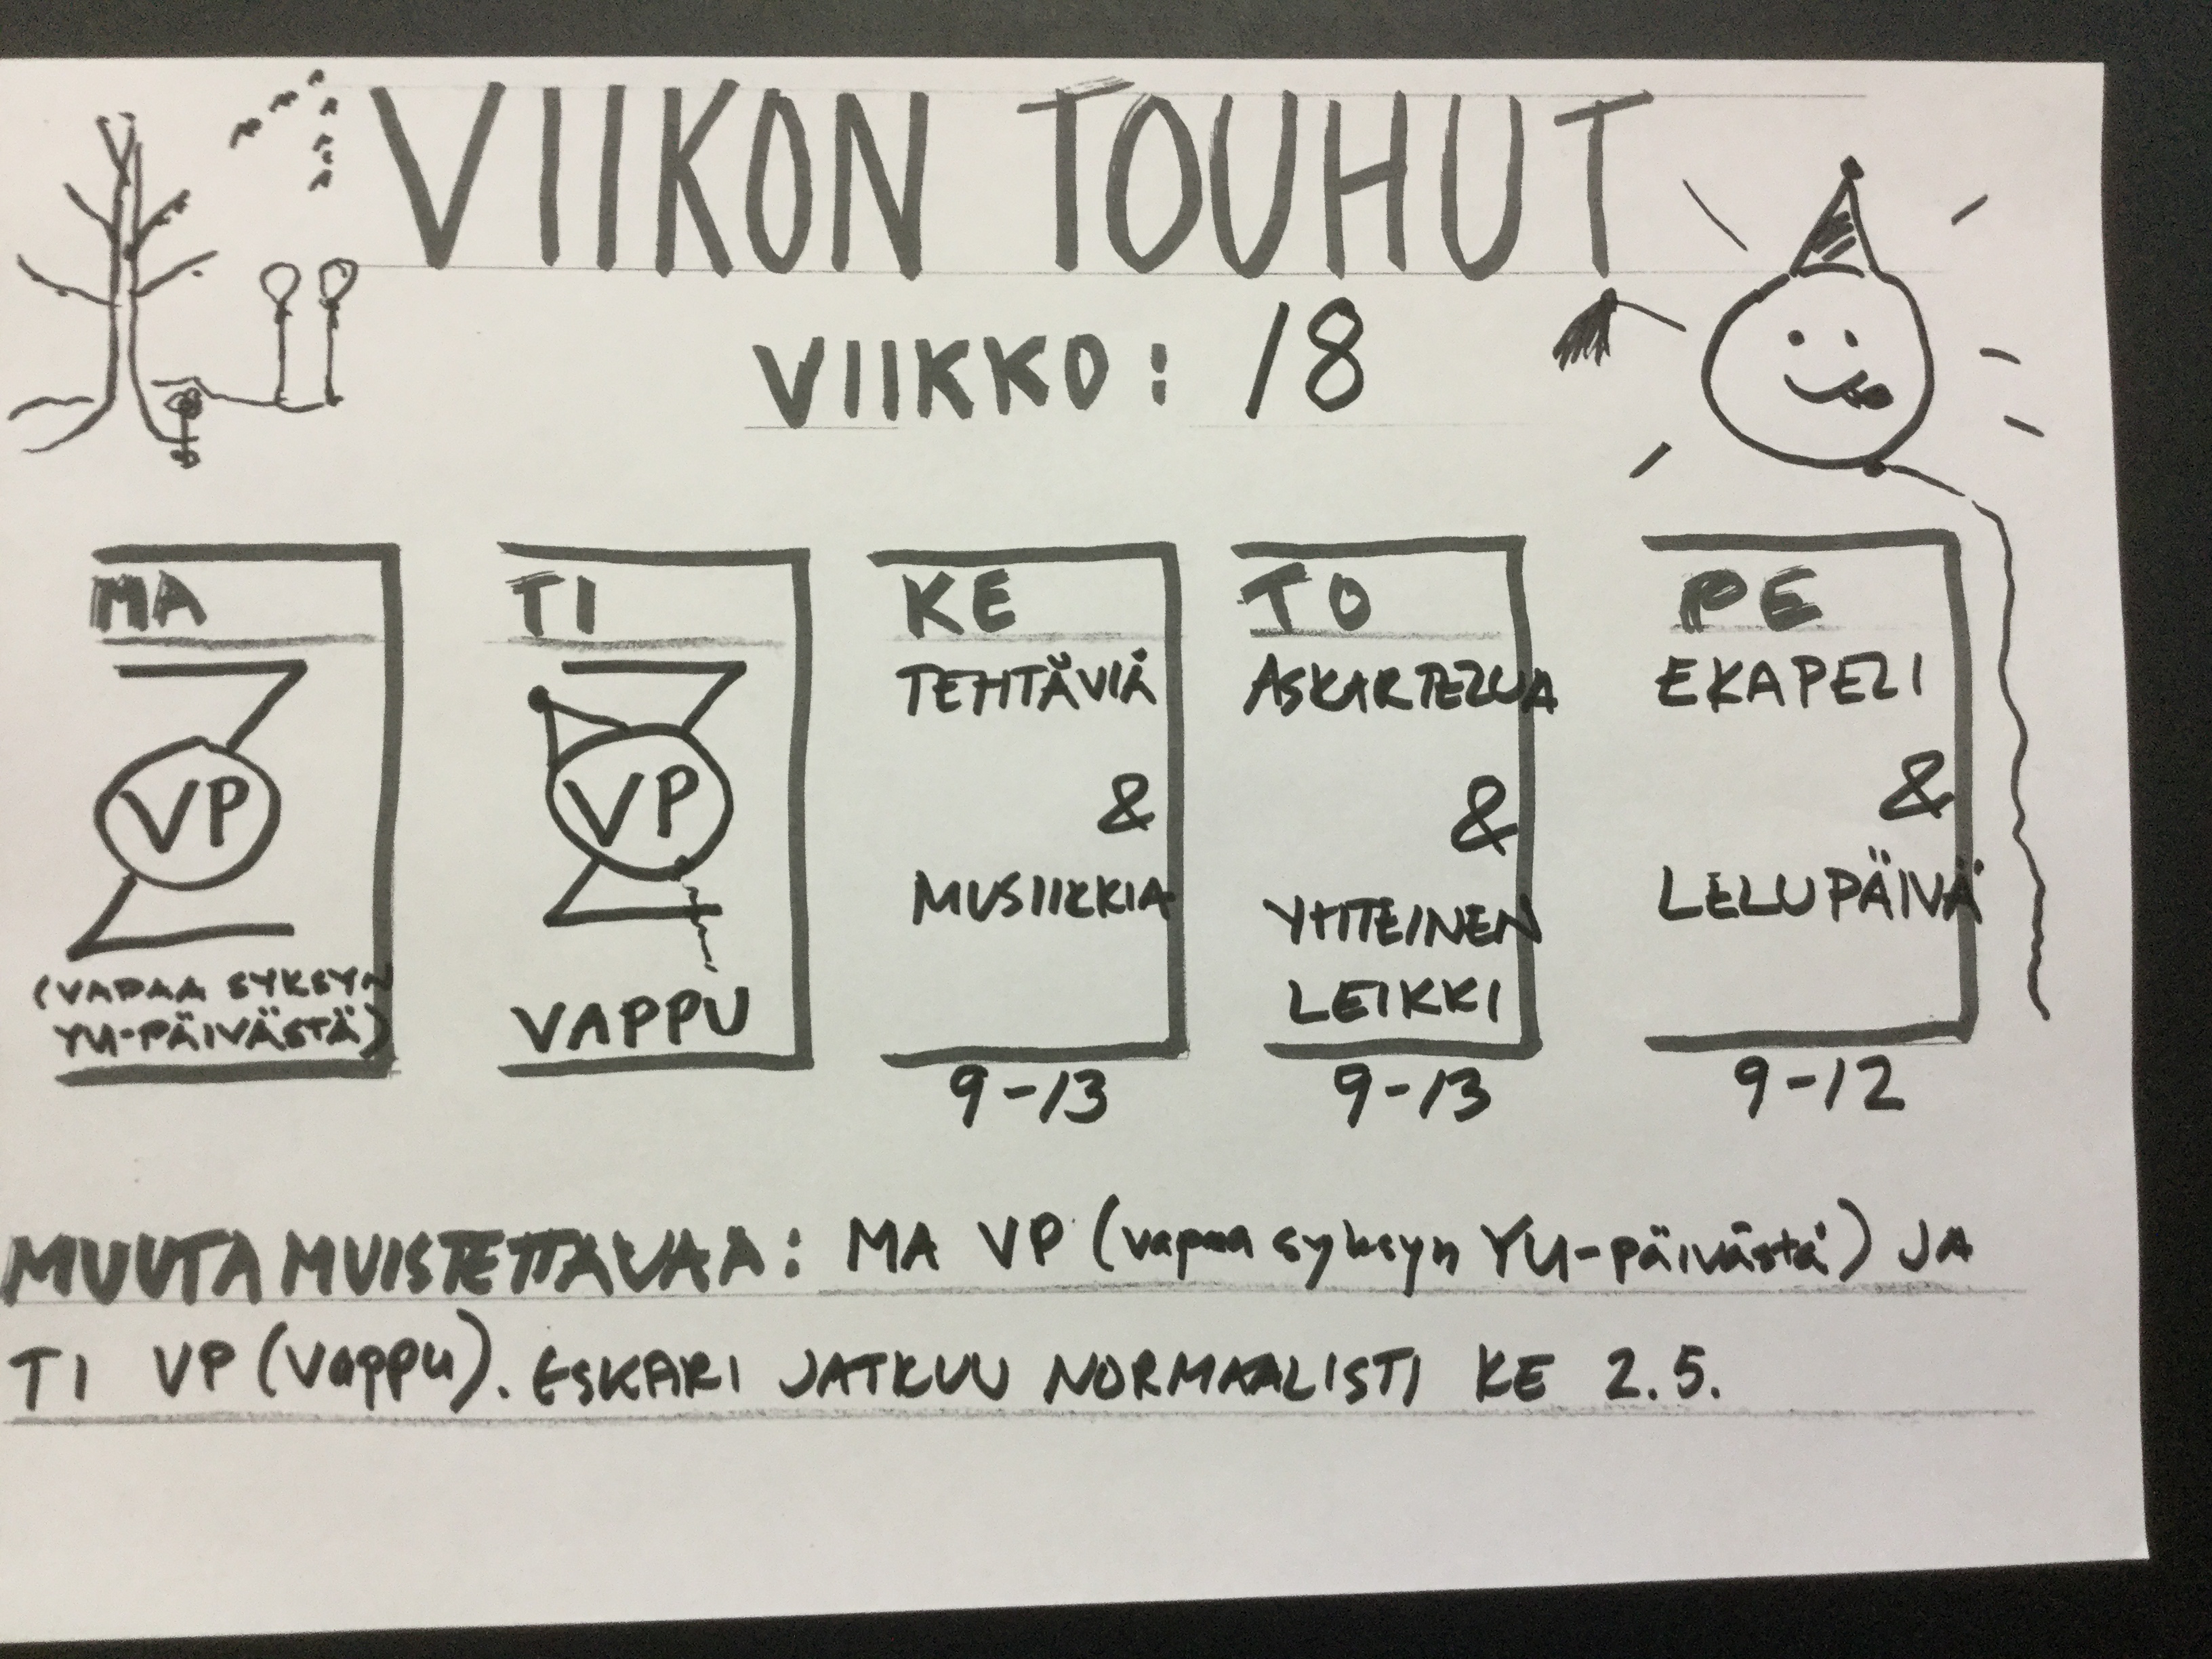 VIIKON TOUHUT
VIIKKO: 18
MA
VP
(VAPAA SYKSYN
YU-PÄIVÄSTÄ)
TI
VP
VAPPU
KE
TEHTÄVIÄ
&
MUSIIKKIA
9-13
TO
ASKARTELUA
&
YHTEINEN
LEIKKI
9-13
PE
EKAPELI
&
LELUPÄIVÄ
9-12
MUUTA MUISTETTAVAA: MA VP (vapaa syksyn YU-päivästä) JA
TI VP (vappu). ESKARI JATKUU NORMAALISTI KE 2.5.